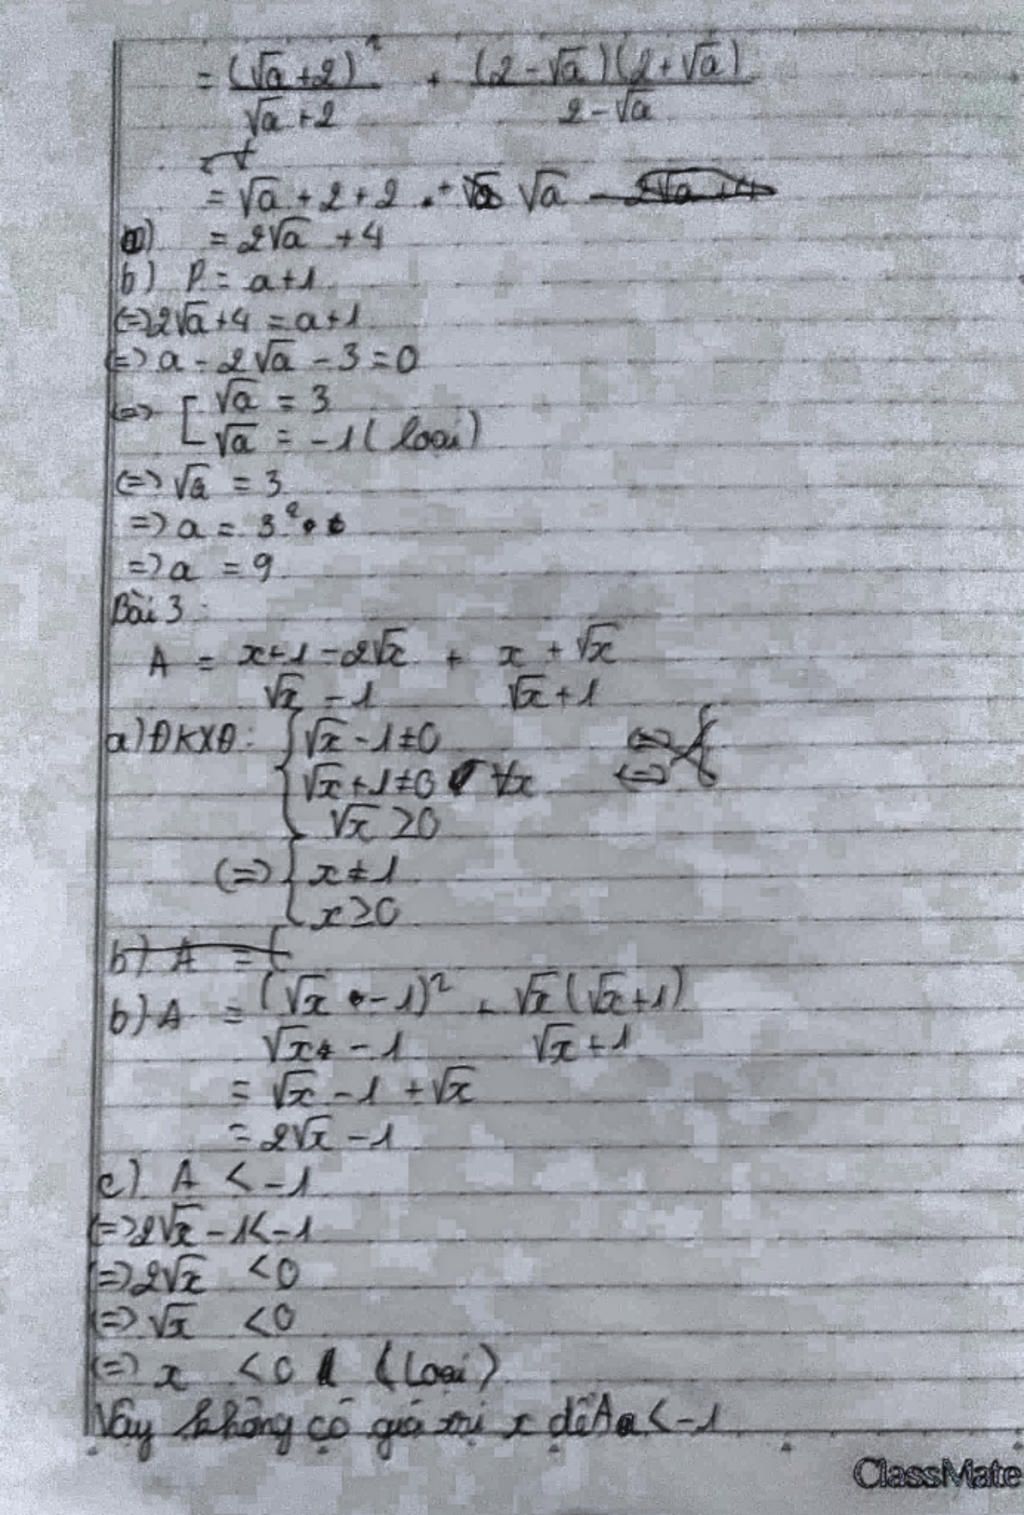 = (√a + 2)² / (√a + 2) + (2 - √a)(2 + √a) / (2 - √a)
= √a + 2 + 2 + √a
a) = 2√a + 4
b) P = a+1
(=) 2√a + 4 = a+1
(=) a - 2√a - 3 = 0
(=) [ √a = 3
√a = -1 (loại)
(=) √a = 3
=) a = 3²
=) a = 9
Bài 3:
A = (x+1-2√x) / (√x - 1) + (x + √x) / (√x + 1)
a) ĐKXĐ: { √x - 1 ≠ 0
√x + 1 ≠ 0 ∀x
√x ≥ 0
(=) { x ≠ 1
x ≥ 0
b) A =
b) A = (√x - 1)² / (√x - 1) + √x(√x+1) / (√x + 1)
= √x - 1 + √x
= 2√x - 1
c) A < -1
(=) 2√x - 1 < -1
(=) 2√x < 0
(=) √x < 0
(=) x < 0 (loại)
Vậy không có giá trị x để A < -1
ClassMate